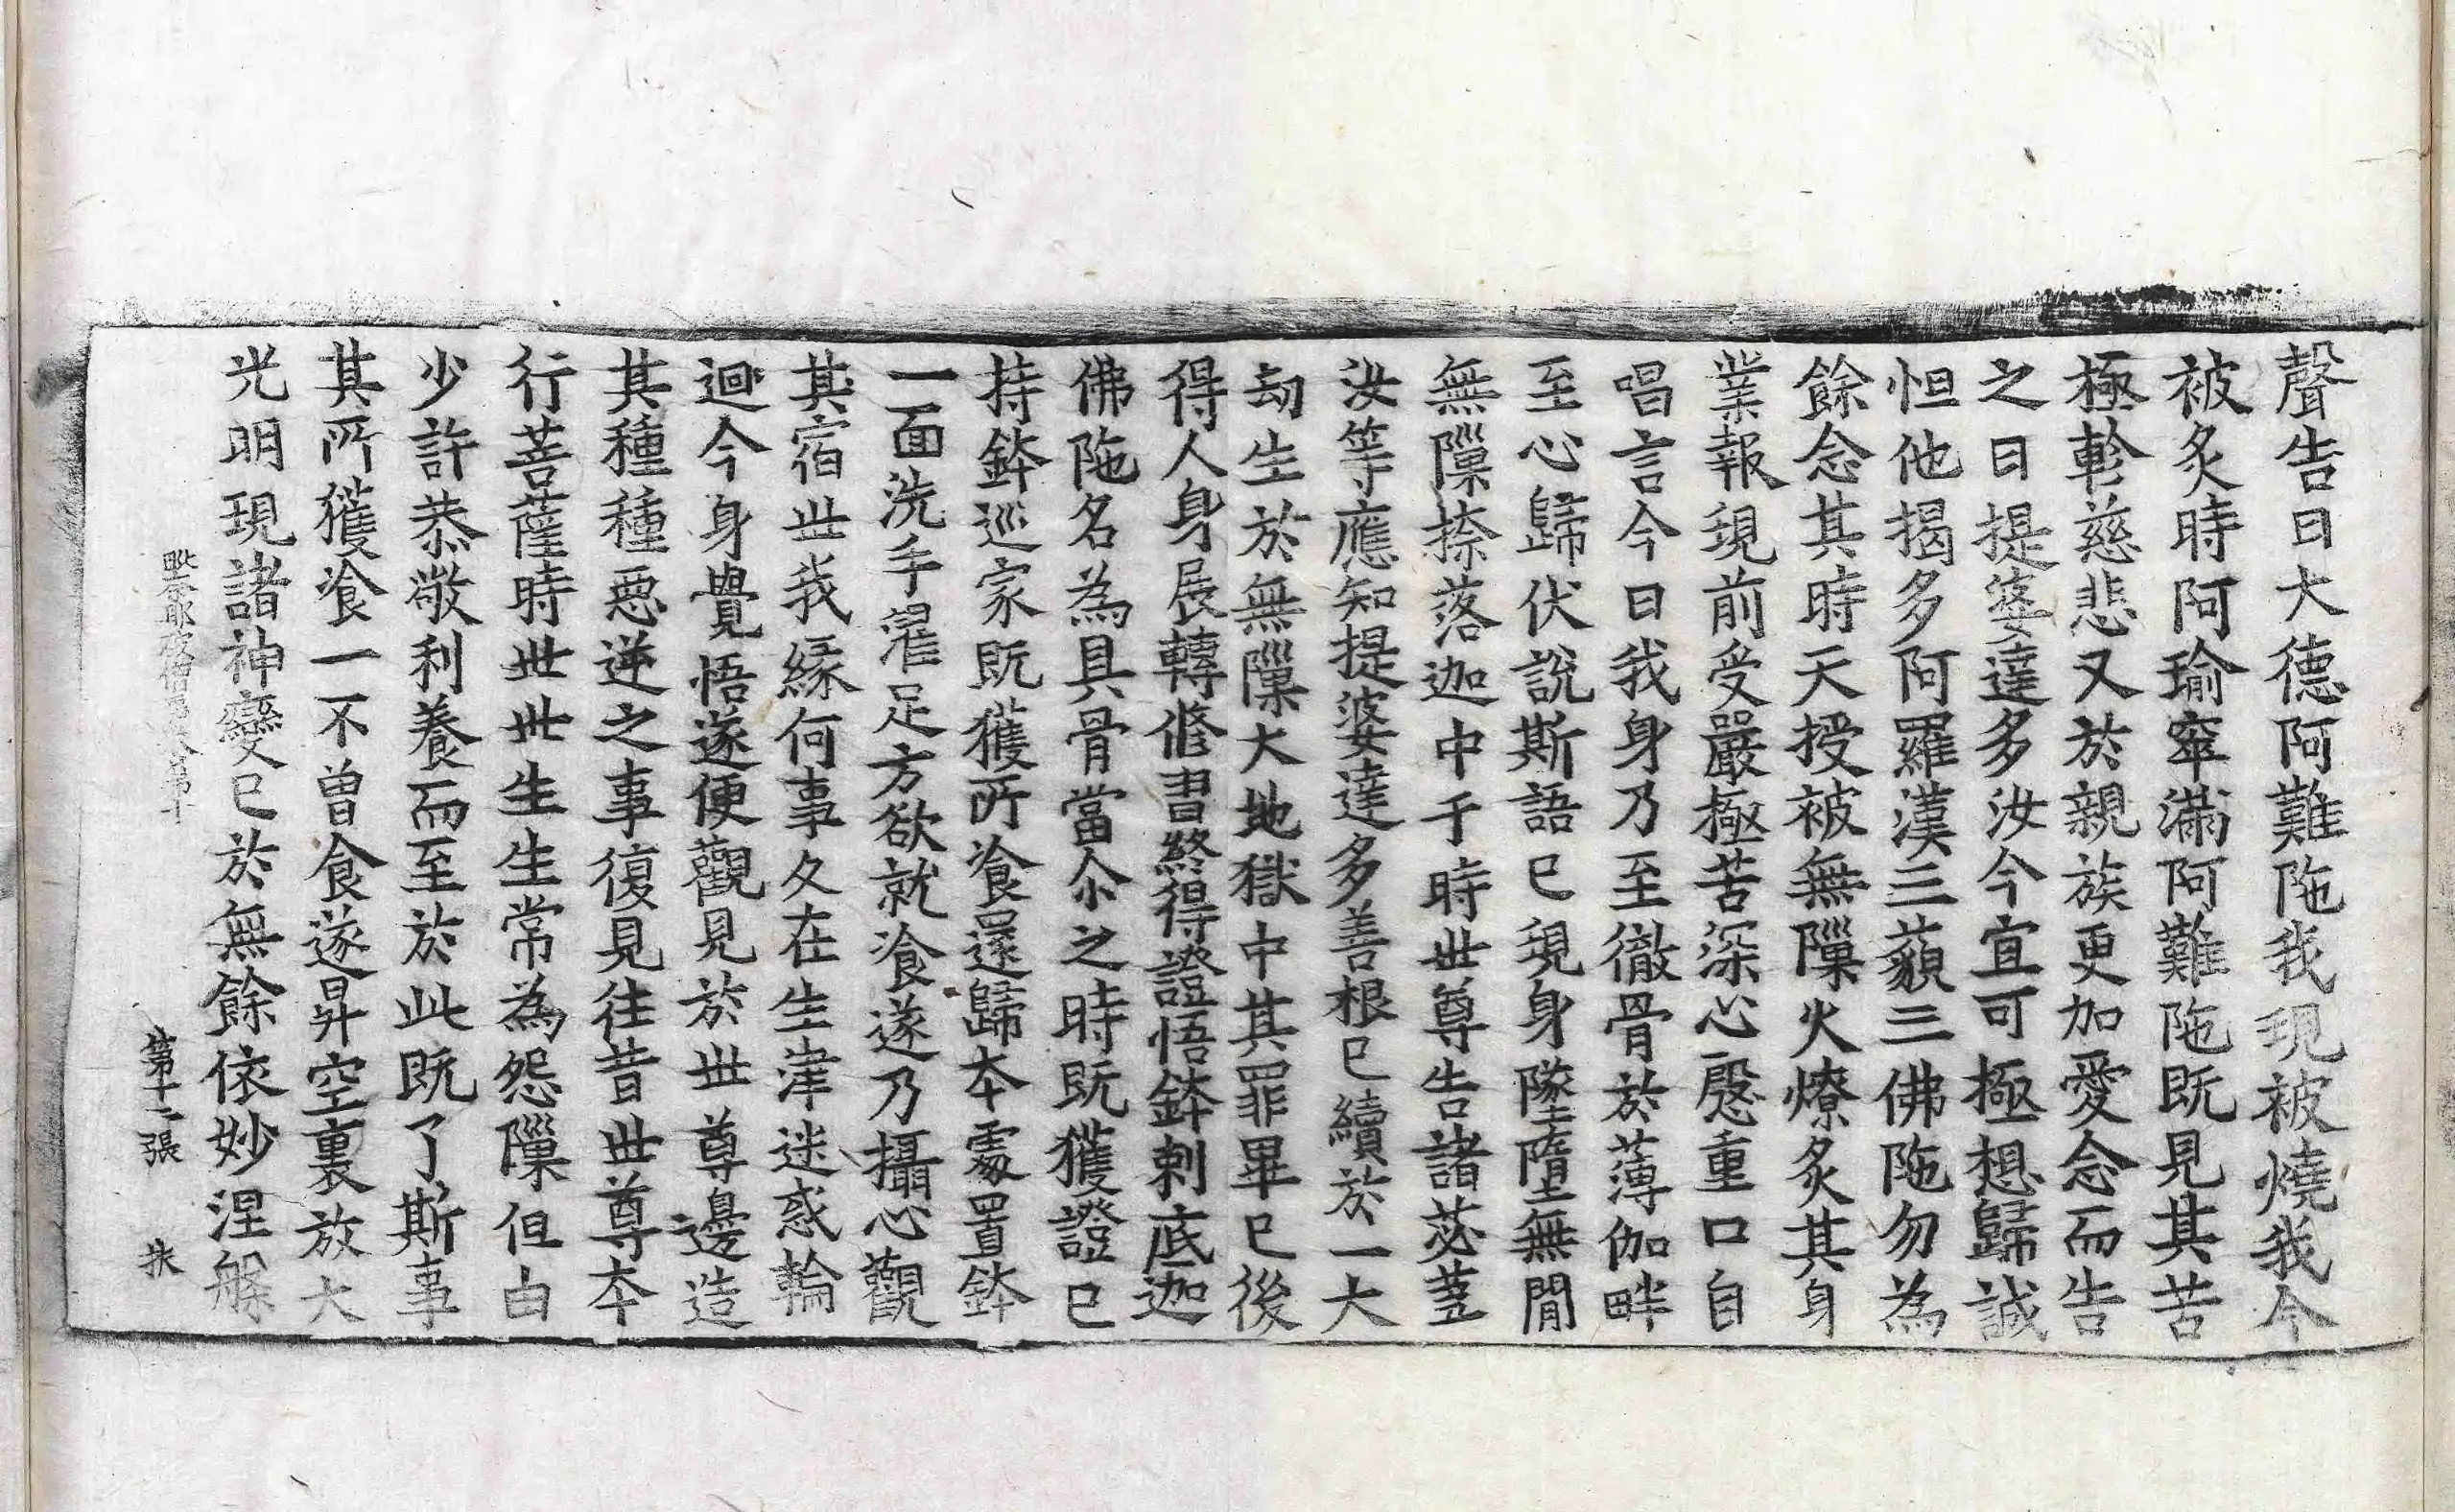 聲告曰大德阿難陁我現被燒我今
被炙時阿瑜窣滿阿難陁既見其苦
極軫慈悲又於親族更加愛念而告
之曰提婆達多汝今宜可極想歸誠
怛他揭多阿羅漢三藐三佛陁勿為
餘念其時天授被無隟火燎炙其身
業報現前受嚴極苦深心慇重口自
唱言今日我身乃至徹骨於薄伽畔
至心歸伏說斯語已現身墜墮無間
無隟捺落迦中于時世尊告諸苾蒭
汝等應知提婆達多善根已續於一大
劫生於無隟大地獄中其罪畢已後
得人身展轉修習終得證悟鉢剌底迦
佛陁名為具骨當尒之時既獲證已
持鉢巡家既獲所飡還歸本處置鉢
一面洗手濯足方欲就飡遂乃攝心觀
其宿世我緣何事久在生津迷惑輪
迴今身覺悟遂便觀見於世尊邊造
其種種惡逆之事復見往昔世尊本
行菩薩時世世生生常為怨隟但由
少許恭敬利養而至於此既了斯事
其所獲飡一不曾食遂昇空裏放大
光明現諸神變已於無餘依妙涅槃
毗奈耶破僧事 第十 第十二張